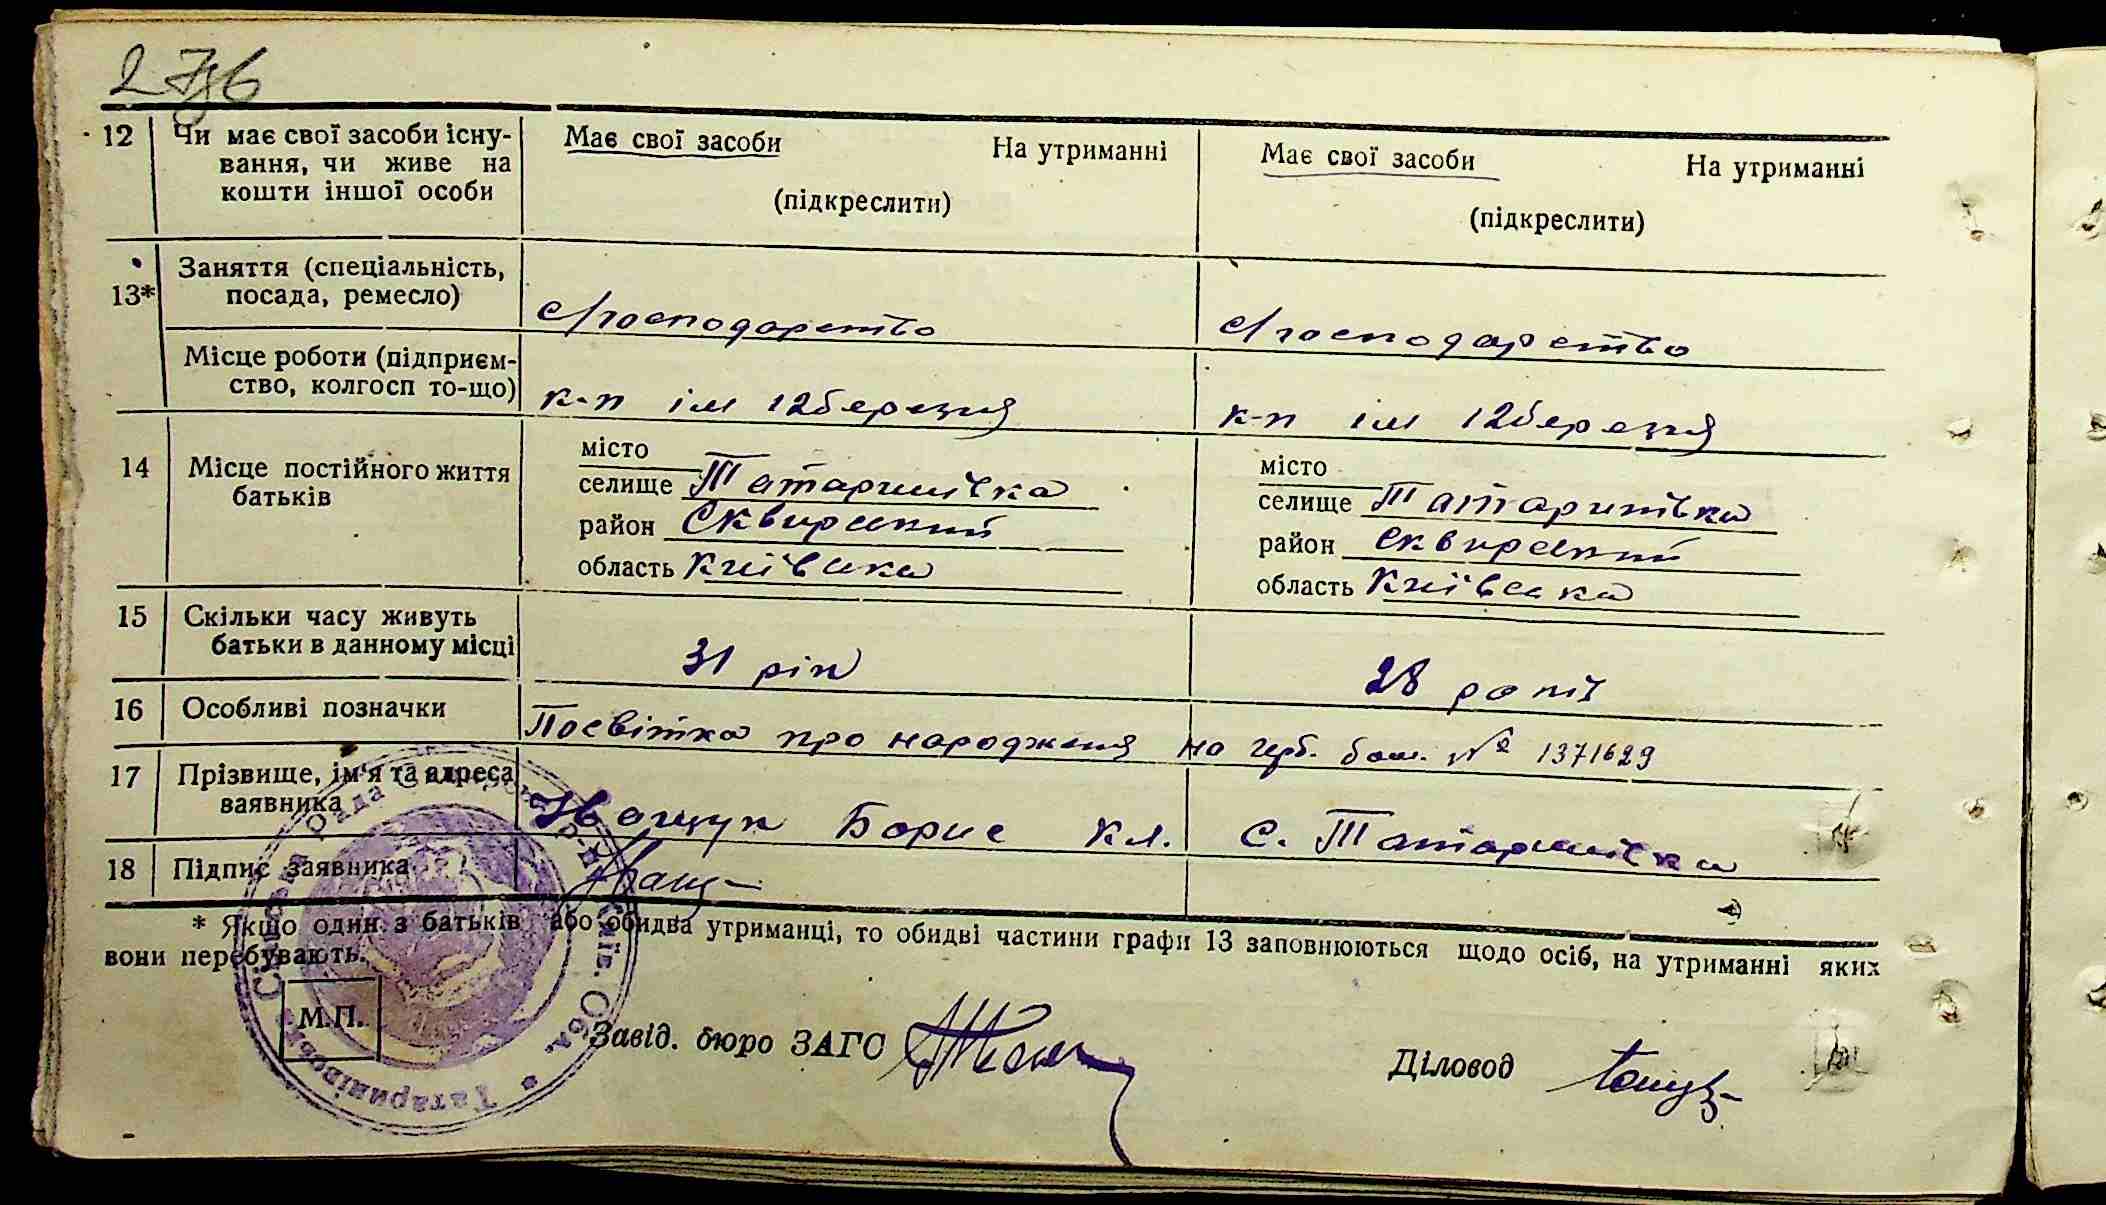 12 Чи має свої засоби існу- Має свої засоби На утриманні Має свої засоби На утриманні
вання, чи живе на
кошти іншої особи (підкреслити) (підкреслити)
13* Заняття (спеціальність,
посада, ремесло) с/господарство с/господарство
Місце роботи (підприєм-
ство, колгосп то-що) к-п ім 12 березня к-п ім 12 березня
14 Місце постійного життя
батьків
місто місто
селище Татаринівка селище Татаринівка
район Сквирський район Сквирський
область Київська область Київська
15 Скільки часу живуть
батьки в данному місці 31 рік 28 років
16 Особливі позначки Посвітка про народженя на герб. бом. № 1371629
17 Прізвище, ім'я та адреса
заявника Іващук Борис Кл. С. Татаринівка
18 Підпис заявника
* Якщо один з батьків або обидва утриманці, то обидві частини графи 13 заповнюються щодо осіб, на утриманні яких
вони перебувають.
М.П.
Завід. бюро ЗАГС Діловод